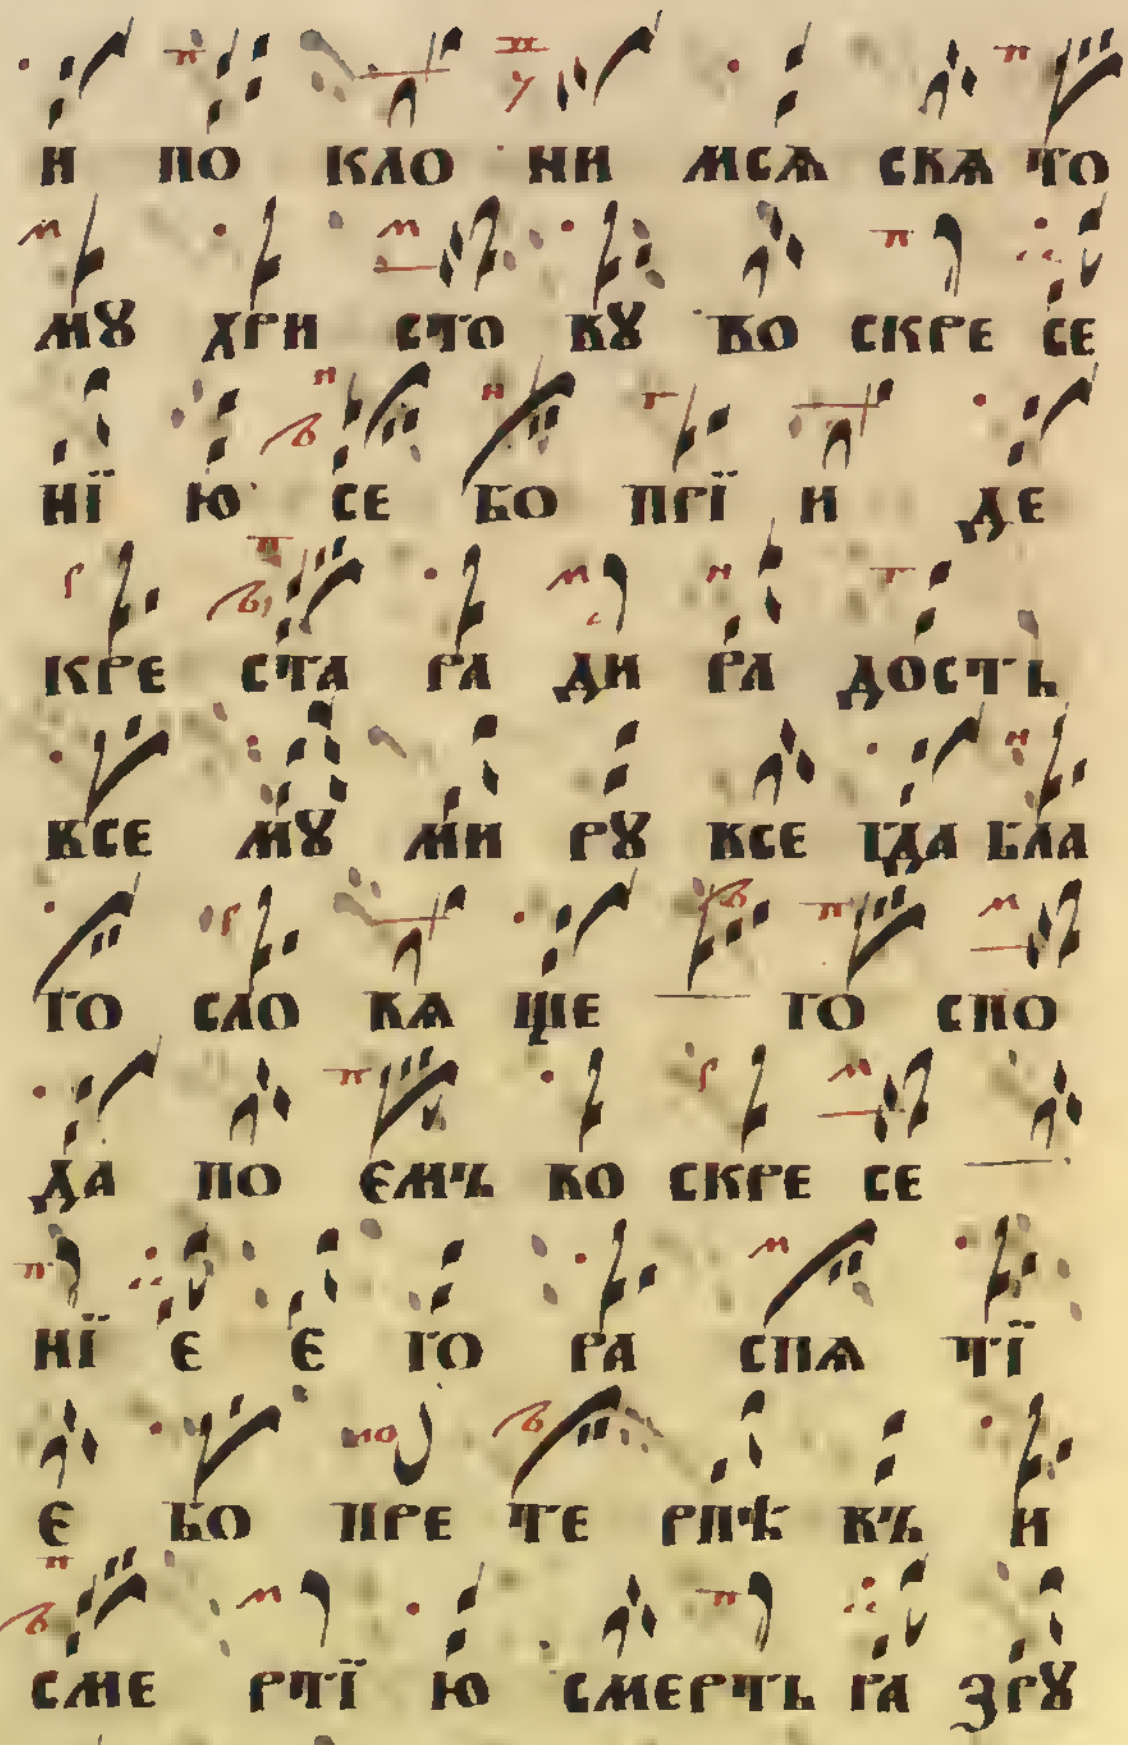 И ПО КЛО НИ МСѦ СВѦ ТО
МꙊ ХРИ СТО ВꙊ ВО СКРЕ СЕ
НЇ Ю СЕ БО ПРЇ И ДЕ
КРЕ СТА РА ДИ РА ДОСТЬ
ВСЕ МꙊ МИ РꙊ ВСЕ ГДА БЛА
ГО СЛО ВѦ ЩЕ — ГО СПО
ДА ПО ЄМЪ ВО СКРЕ СЕ —
НЇ Е Є ГО РА СПѦ ТЇ
Є БО ПРЕ ТЕ РПѢ ВЪ И
СМЕ РТЇ Ю СМЕРТЬ РА ЗРꙊ